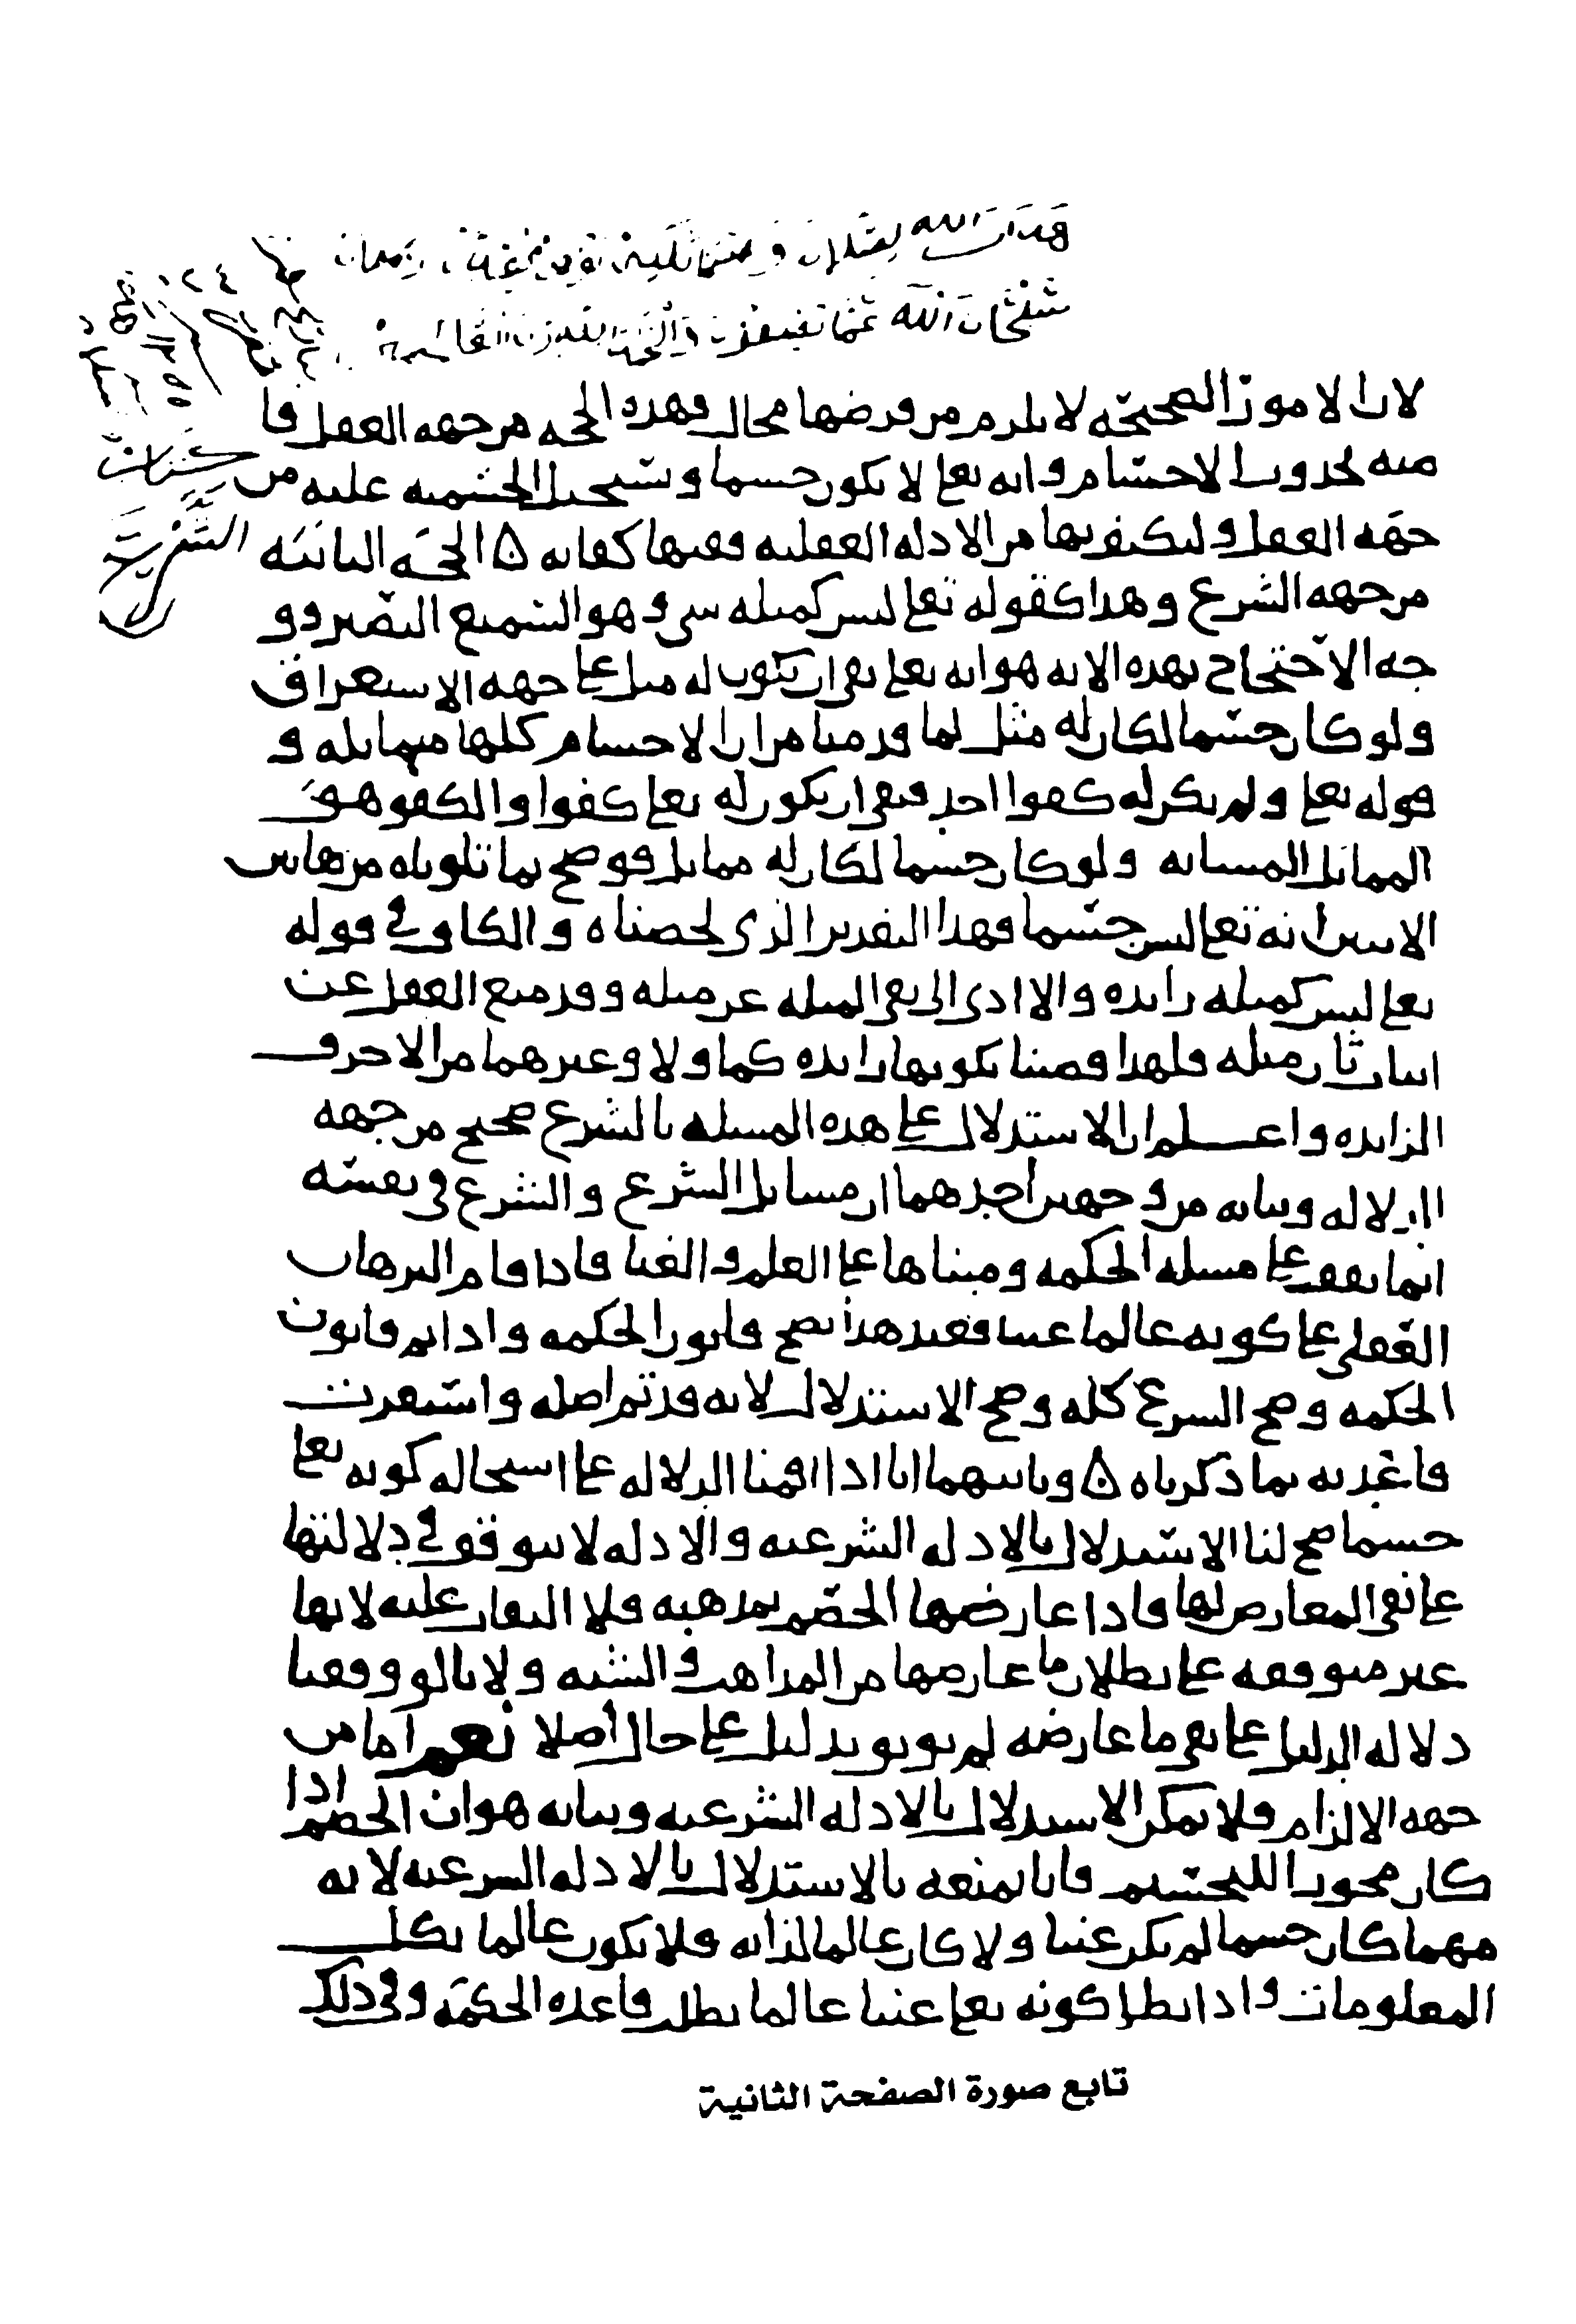 لان الامور الصحيحه لا يلزم من فرضها محال فهذه الحجه من جهه العقل قا
ضيه لحدوث الاجسام وانه تعالى لا يكون جسما وتستحيل الجسميه عليه من
جهه العقل وليكتف بها من الادله العقليه ففيها كفايه ۞ الحجه الثانيه
من جهه الشرع وهذا كقوله تعالى ليس كمثله شيء وهو السميع البصير وو
جه الاحتجاج بهذه الايه هو انه تعالى نفى ان يكون له مثل على جهه الاستغراق
ولو كان جسما لكان له مثل لما قدمنا من ان الاجسام كلها متماثله و
قوله تعالى ولم يكن له كفوا احد فنفى ان يكون له تعالى كفوا والكفو هو
المماثل المشابه ولو كان جسما لكان له مماثل فوضح بما تلوناه من هاتين
الايتين انه تعالى ليس جسما فهذا التقدير الذي لخصناه والكاف في قوله
تعالى ليس كمثله زايده والا ادى الى نفي المثله عن مثله وقد منع العقل عن
اثبات ثان مثله فلهذا قضينا بكونها زايده كما ولا وغيرهما من الاحرف
الزايده واعلم ان الاستدلال على هذه المسله بالشرع صحيح من جهه
الدلاله وبيانه من وجهين احدهما ان مسايل الشرع والشرع في نفسه
انما يقف على مسله الحكمه ومبناها على العلم والغنا فاذا قام البرهان
العقلي على كونه عالما غنيا فعند هذا يصح قانون الحكمه واذا تم قانون
الحكمه وصح الشرع كله وصح الاستدلال لانه قد تم اصله واستقرت
قاعدته بما ذكرناه ۞ وثانيهما انا اذا اقمنا الدلاله على استحاله كونه تعالى
جسما صح لنا الاستدلال بالادله الشرعيه والادله لا يتوقف في دلالتها
على نفي المعارض لها فاذا عارضها الخصم بمذهبه فلا التفات عليه لانها
غير متوقفه على بطلان ما عارضها من المذاهب والشبه ولانا لو وقفنا
دلاله الدليل على نفي ما عارضه لم يوثق بدليل على حال اصلا نعم اما من
جهه الالزام فلا يمكن الاستدلال بالادله الشرعيه وبيانه هو ان الخصم اذا
كان مجوزا للتجسيم فانا نمنعه بالاستدلال بالادله الشرعيه لانه
مهما كان جسما لم يكن غنيا ولا كان عالما لذاته فلا يكون عالما بكل
المعلومات واذا بطل كونه تعالى غنيا عالما بطلت قاعده الحكمه وفي ذلك
تابع صورة الصفحة الثانية